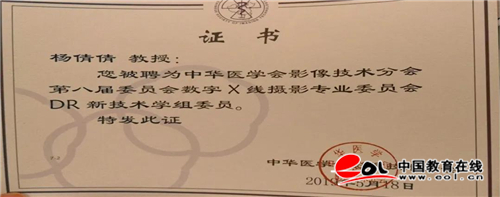 证书
杨倩倩 教授：
您被聘为中华医学会影像技术分会
第八届委员会数字X线摄影专业委员会
DR新技术学组委员。
特发此证
中华医学
eol 中国教育在线
www.eol.cn